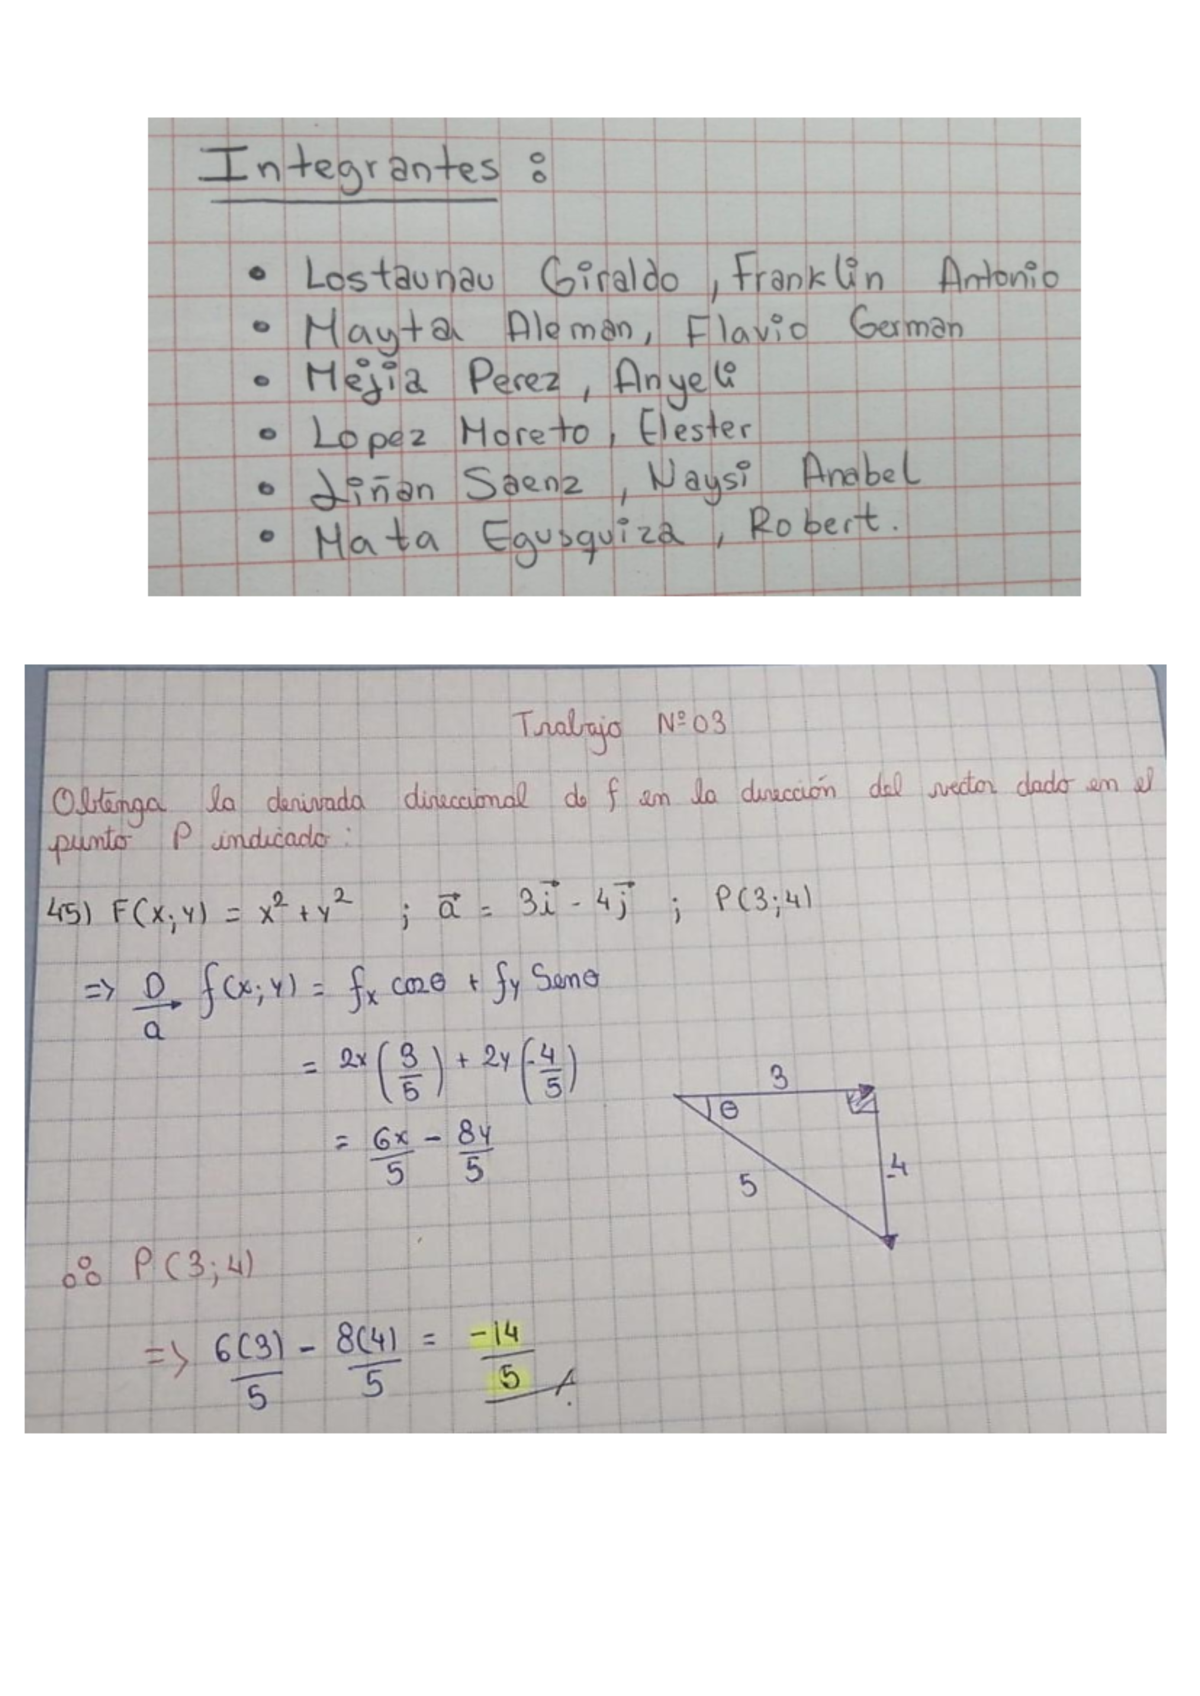 Integrantes :
• Lostaunau Giraldo, Franklin Antonio
• Mayta Aleman, Flavio German
• Mejia Perez, Anyeli
• Lopez Moreto, Elester
• Liñan Saenz, Naysi Anabel
• Mata Egusquiza, Robert.
Trabajo Nº 03
Obtenga la derivada direccional de f en la dirección del vector dado en el
punto P indicado:
45) F(x;y) = x² + y² ; a⃗ = 3i⃗ - 4j⃗ ; P(3;4)
=> D/a⃗ f(x;y) = fx cosθ + fy Senθ
= 2x(3/5) + 2y(-4/5)
= 6x/5 - 8y/5
3
θ
5
-4
∴ P(3;4)
=> 6(3)/5 - 8(4)/5 = -14/5